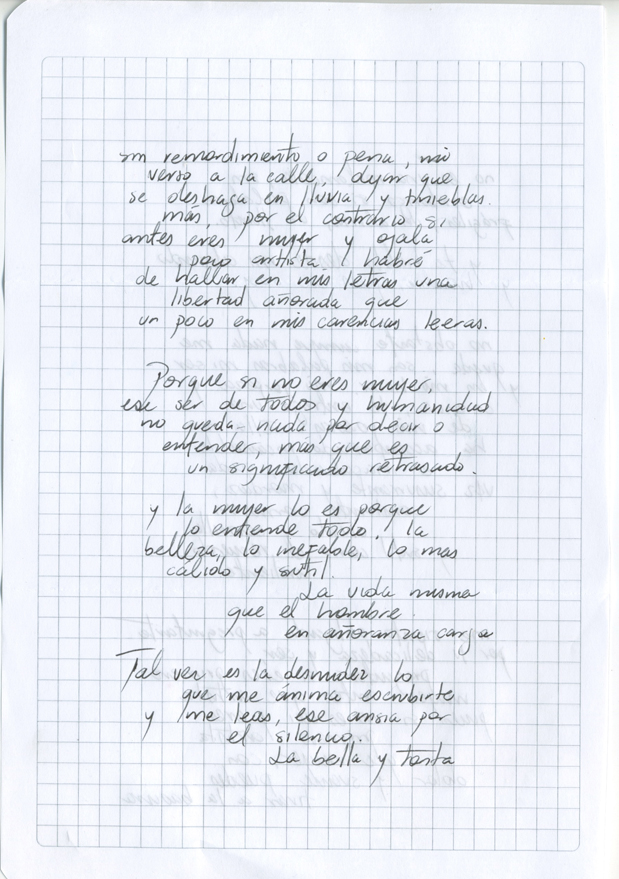 sin remordimiento o pena, mi
verso a la calle, dejar que
se deshaga en lluvia y tinieblas.
más, por el contrario si,
antes eres mujer y ojalá
poco artista, habré
de hallar en mis letras una
libertad añorada que
un poco en mis carencias leeras.
Porque si no eres mujer,
ese ser de todos y humanidad
no queda nada por decir o
entender, más que es
un significado retrasado.
y la mujer lo es porque
lo entiende todo, la
belleza, lo inefable, lo mas
cálido y sutil.
La vida misma
que el hombre
en añoranza carga
Tal vez es la desnudez lo
que me ánima escribirte
y me leas, ese ansia por
el silencio.
La bella y tonta